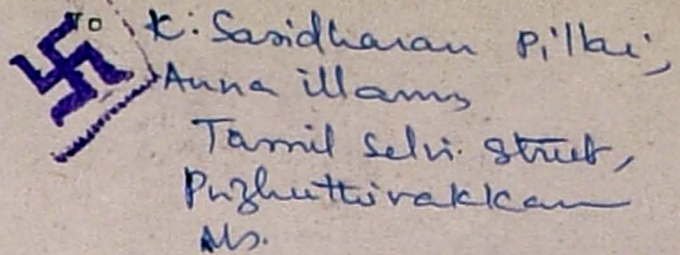 To K. Sasidharan Pillai,
Anna illam,
Tamil Selvi. Street,
Puzhuthivakkam
Ms.